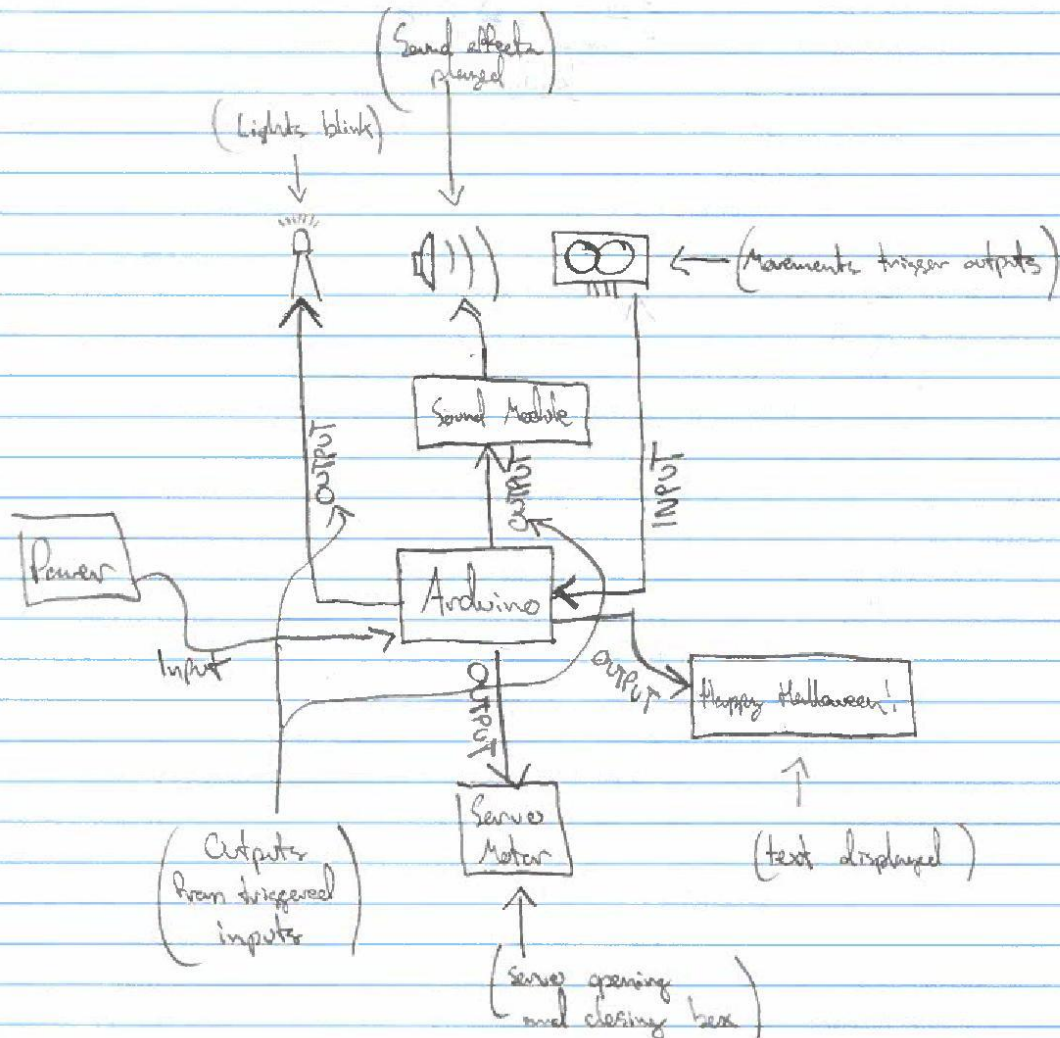 (Sound effects
played)
(Lights blink)
(Movements trigger outputs)
Sound Module
OUTPUT
OUTPUT
INPUT
Power
Arduino
Input
OUTPUT
OUTPUT
Happy Halloween!
Servo
Motor
(Outputs
from triggered
inputs)
(text displayed)
(Servo opening
and closing box)